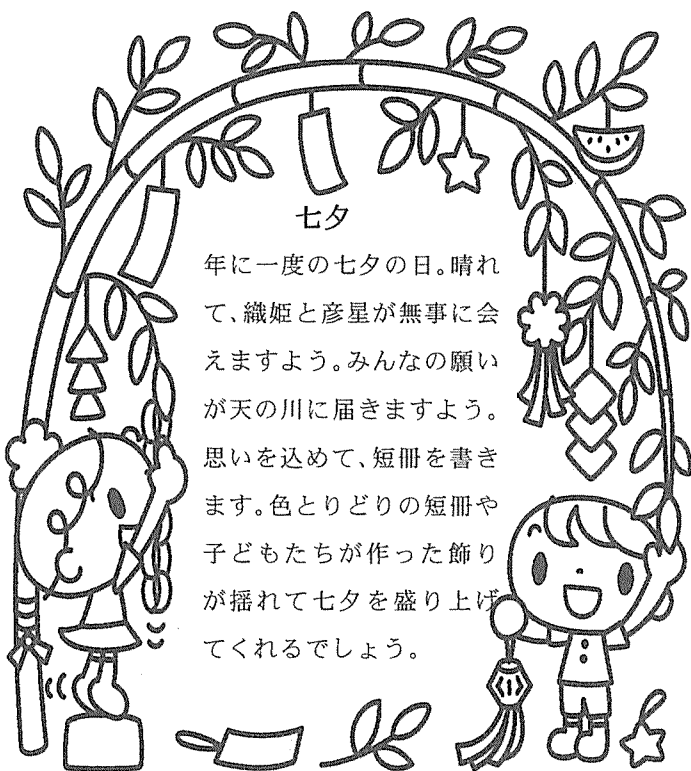 七夕
年に一度の七夕の日。晴れ
て、織姫と彦星が無事に会
えますよう。みんなの願い
が天の川に届きますよう。
思いを込めて、短冊を書き
ます。色とりどりの短冊や
子どもたちが作った飾り
が揺れて七夕を盛り上げ
てくれるでしょう。